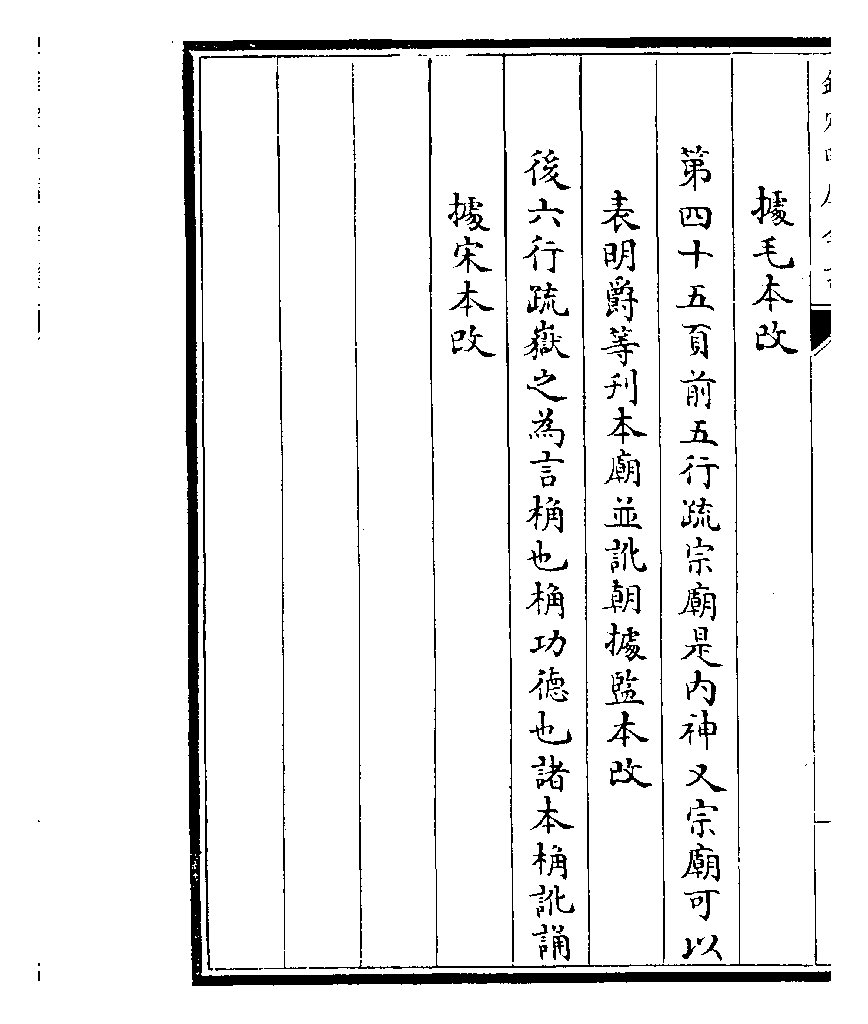 據毛本改
第四十五頁前五行疏宗廟是内神又宗廟可以
表明爵等刊本廟並訛朝據監本改
後六行疏嶽之為言桷也桷功德也諸本桷訛誦
據宋本改